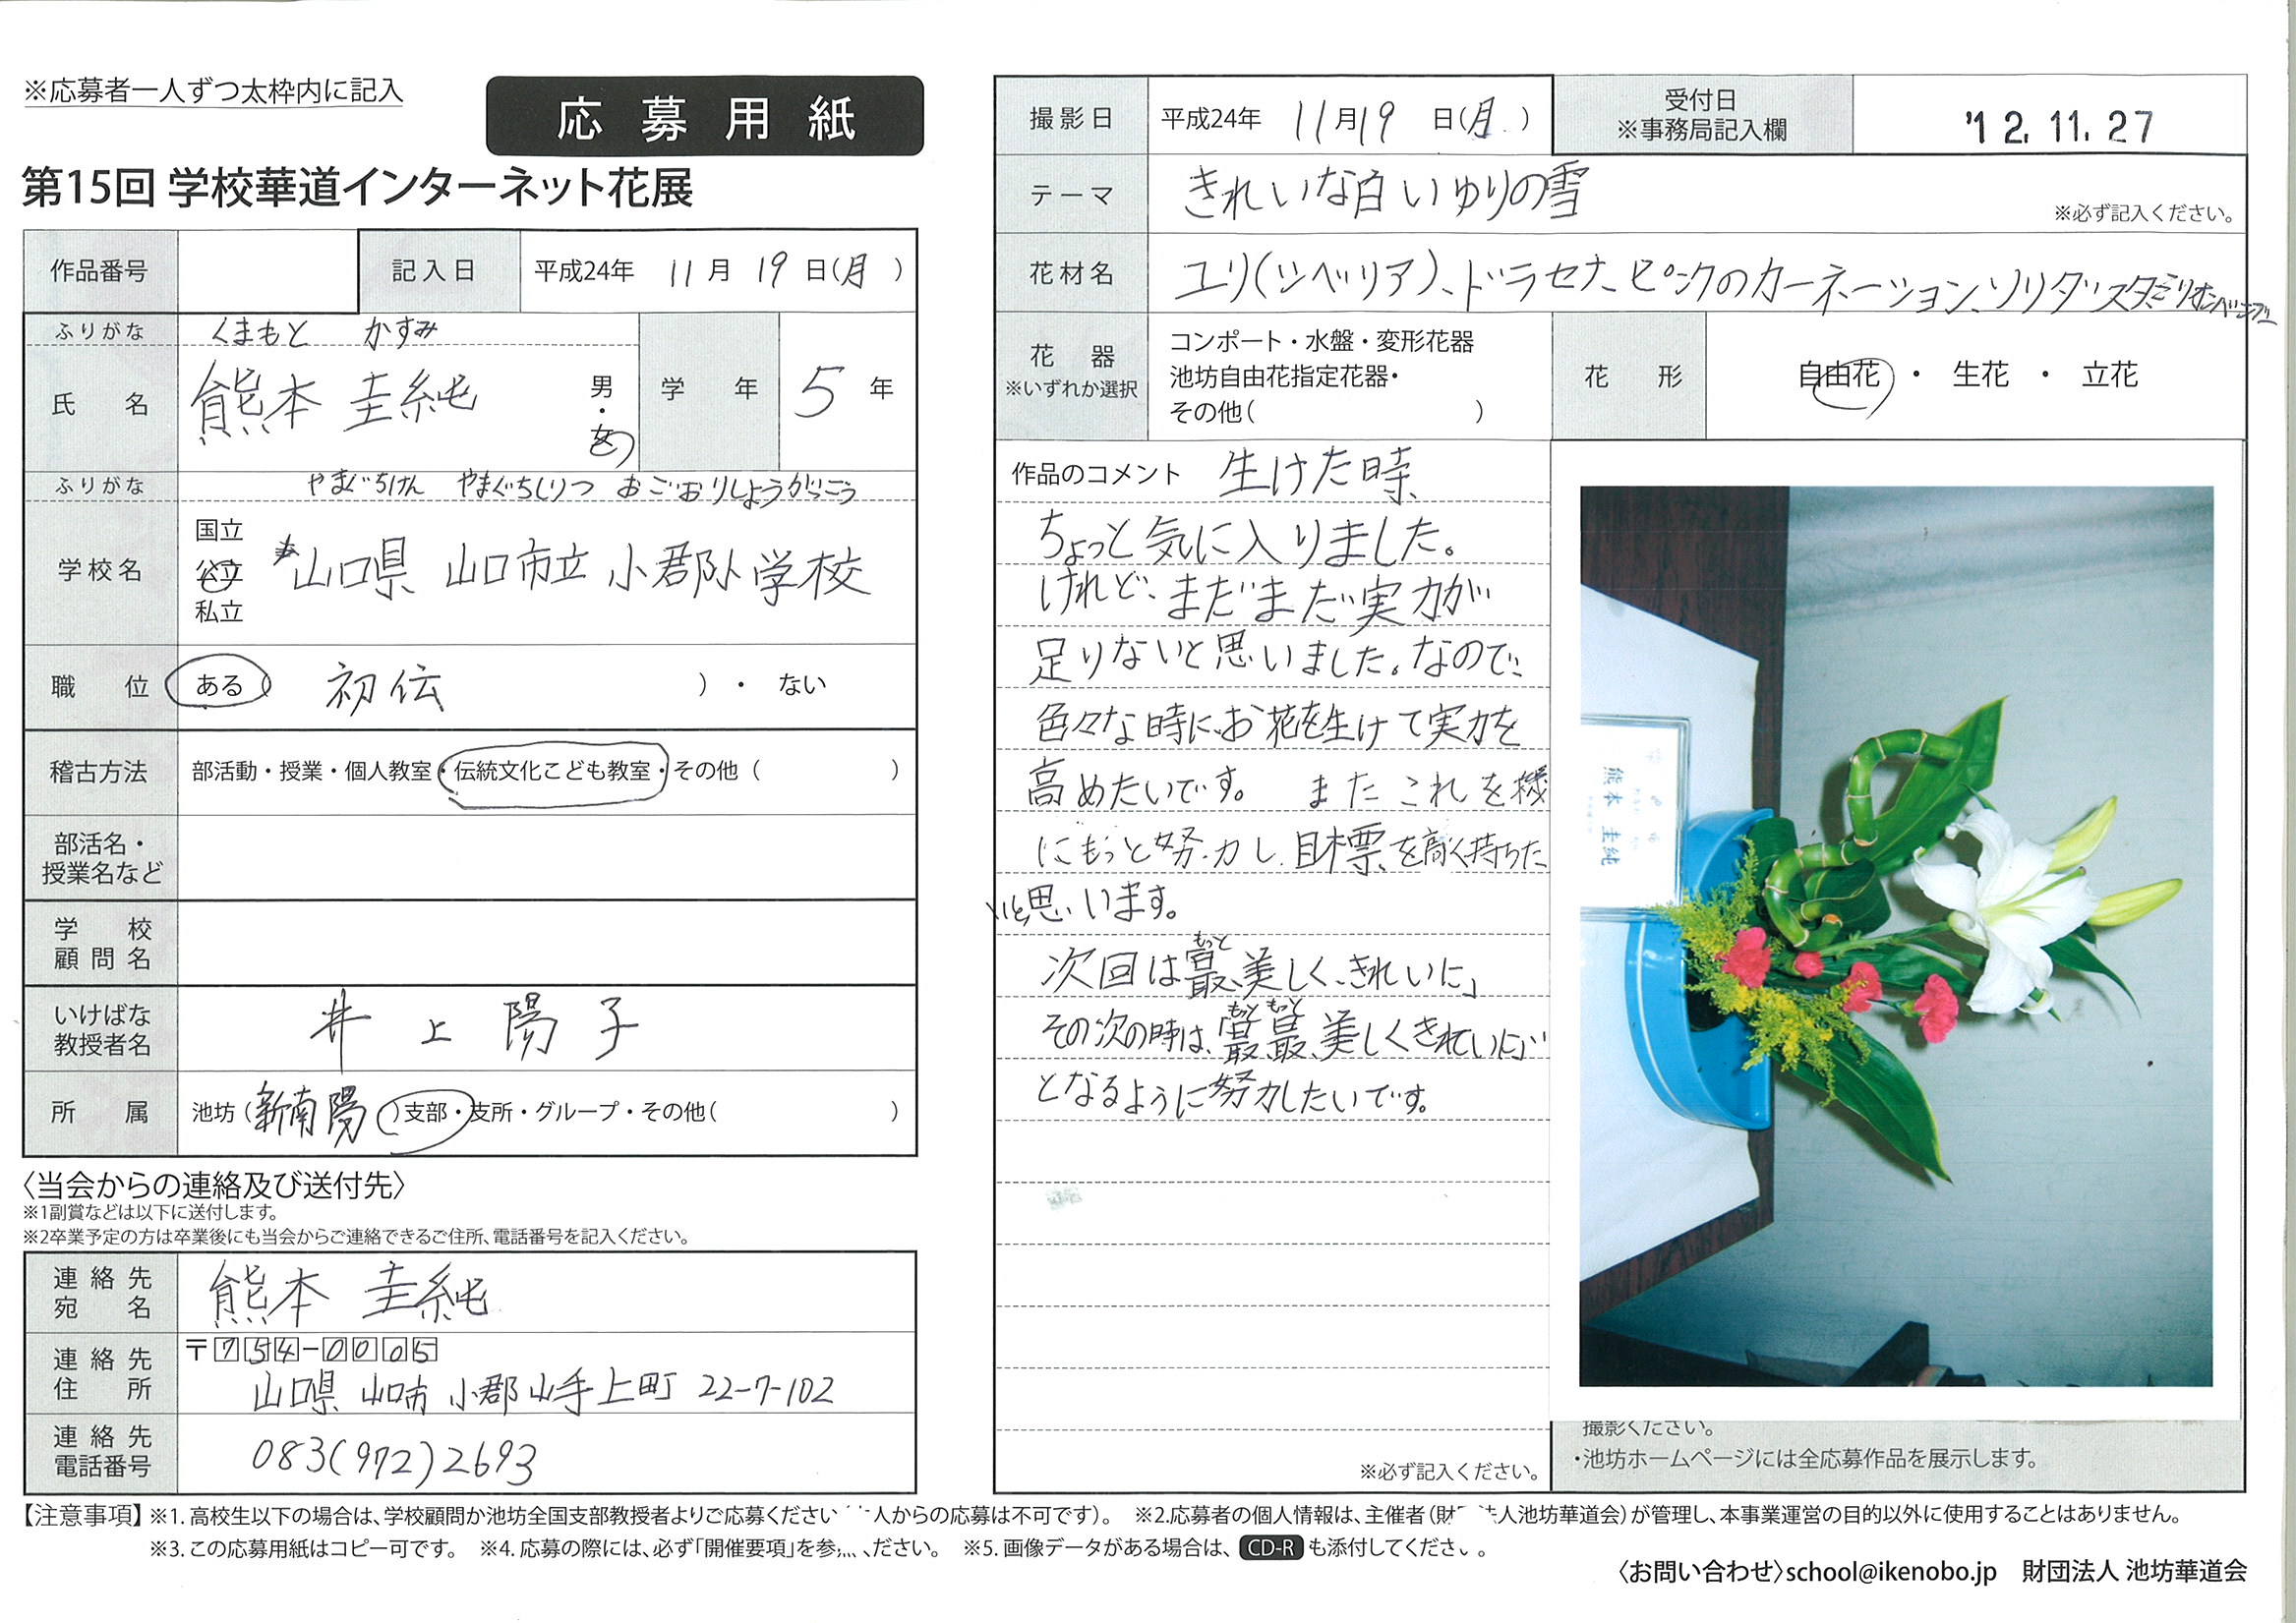 ※応募者一人ずつ太枠内に記入
応募用紙
第15回 学校華道インターネット花展
作品番号
記入日 平成24年 11月 19日(月)
ふりがな くまもと かすみ
氏名 熊本 圭純 男・女
学年 5年
ふりがな やまぐちけん やまぐちしりつ おごおりしょうがっこう
学校名 国立 公立 私立 山口県 山口市立 小郡小学校
職位 ある( 初伝 )・ ない
稽古方法 部活動・授業・個人教室・伝統文化こども教室・その他( )
部活名・授業名など
学校顧問名
いけばな教授者名 井上陽子
所属 池坊(新南陽)支部・支所・グループ・その他( )
〈当会からの連絡及び送付先〉
※1副賞などは以下に送付します。
※2卒業予定の方は卒業後にも当会からご連絡できるご住所、電話番号を記入ください。
連絡先宛名 熊本 圭純
連絡先住所 〒754-0005
山口県 山口市 小郡山手上町 22-7-102
連絡先電話番号 083(972)2693
撮影日 平成24年 11月19日(月)
受付日 ※事務局記入欄 '12.11.27
テーマ きれいな白いゆりの雪
※必ず記入ください。
花材名 ユリ(シベリア)、ドラセナ、ピンクのカーネーション、ソリダスタ、ミリオンバンブー
花器 ※いずれか選択
コンポート・水盤・変形花器
池坊自由花指定花器・
その他( )
花形 自由花 ・ 生花 ・ 立花
作品のコメント 生けた時、
ちょっと気に入りました。
けれど、まだまだ実力が
足りないと思いました。なので、
色々な時にお花を生けて実力を
高めたいです。 またこれを機
にもっと努力し、目標を高く持ちた
いと思います。
もっと
次回は最、美しく、きれいに」
もっと もっと
その次の時は、最最、美しくきれいに」
となるように努力したいです。
※必ず記入ください。
熊本 圭純
撮影ください。
・池坊ホームページには全応募作品を展示します。
【注意事項】※1.高校生以下の場合は、学校顧問か池坊全国支部教授者よりご応募ください 人からの応募は不可です)。 ※2.応募者の個人情報は、主催者(財 法人池坊華道会)が管理し、本事業運営の目的以外に使用することはありません。
※3.この応募用紙はコピー可です。 ※4.応募の際には、必ず「開催要項」を参 ください。 ※5.画像データがある場合は、CD-Rも添付してください。
〈お問い合わせ〉school@ikenobo.jp 財団法人 池坊華道会